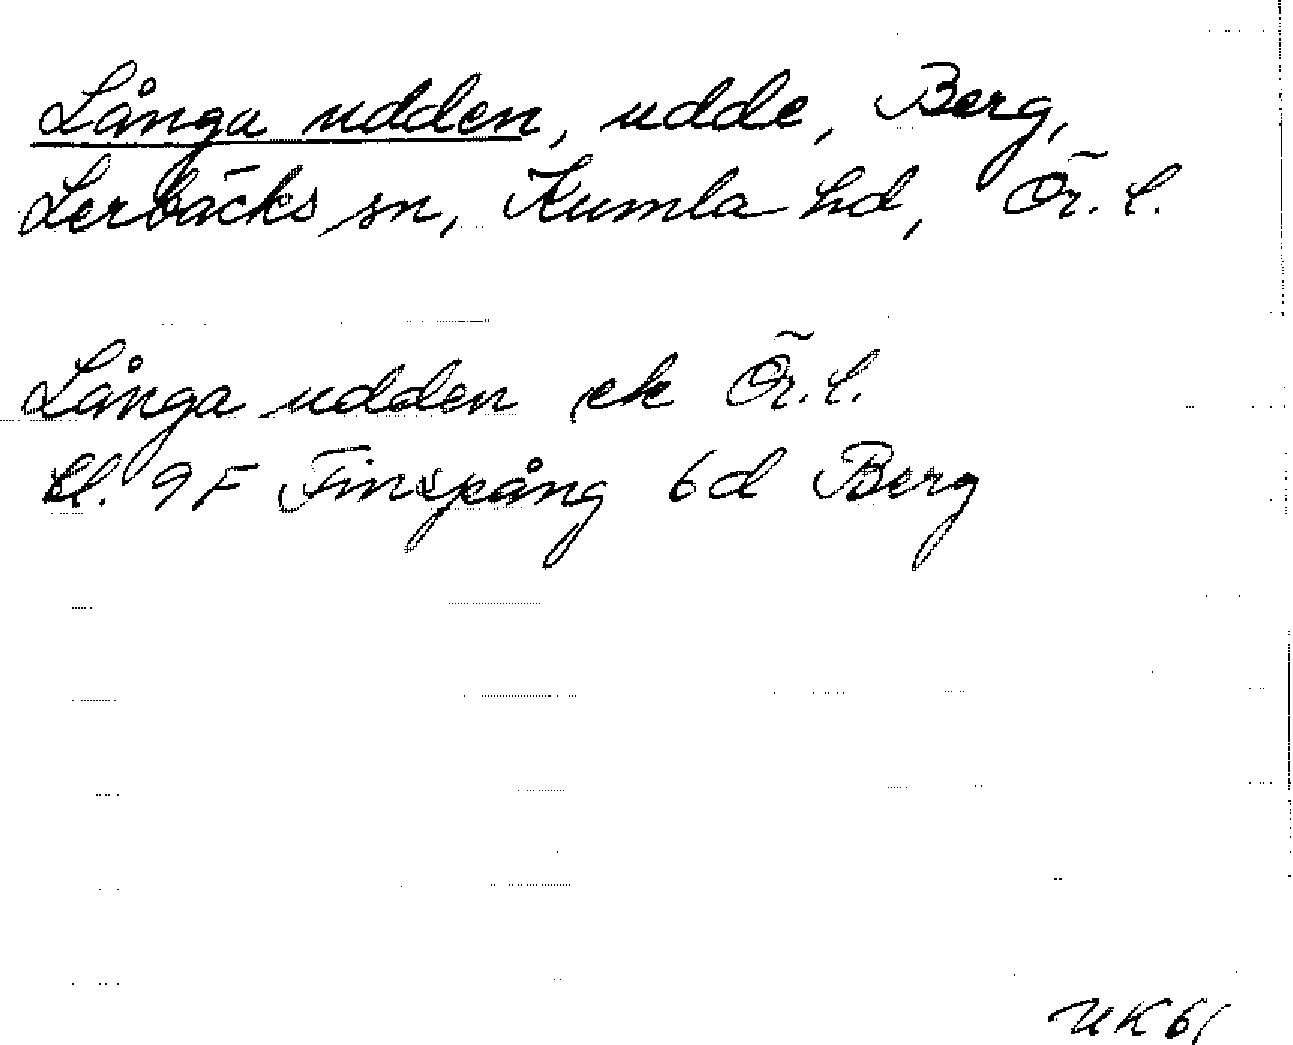 Långa udden, udde, Berg,
Lerbäcks sn, Kumla hd, Ör. l.
Långa udden ek Ör. l.
Bl. 9F Finspång 6d Berg
UK 61